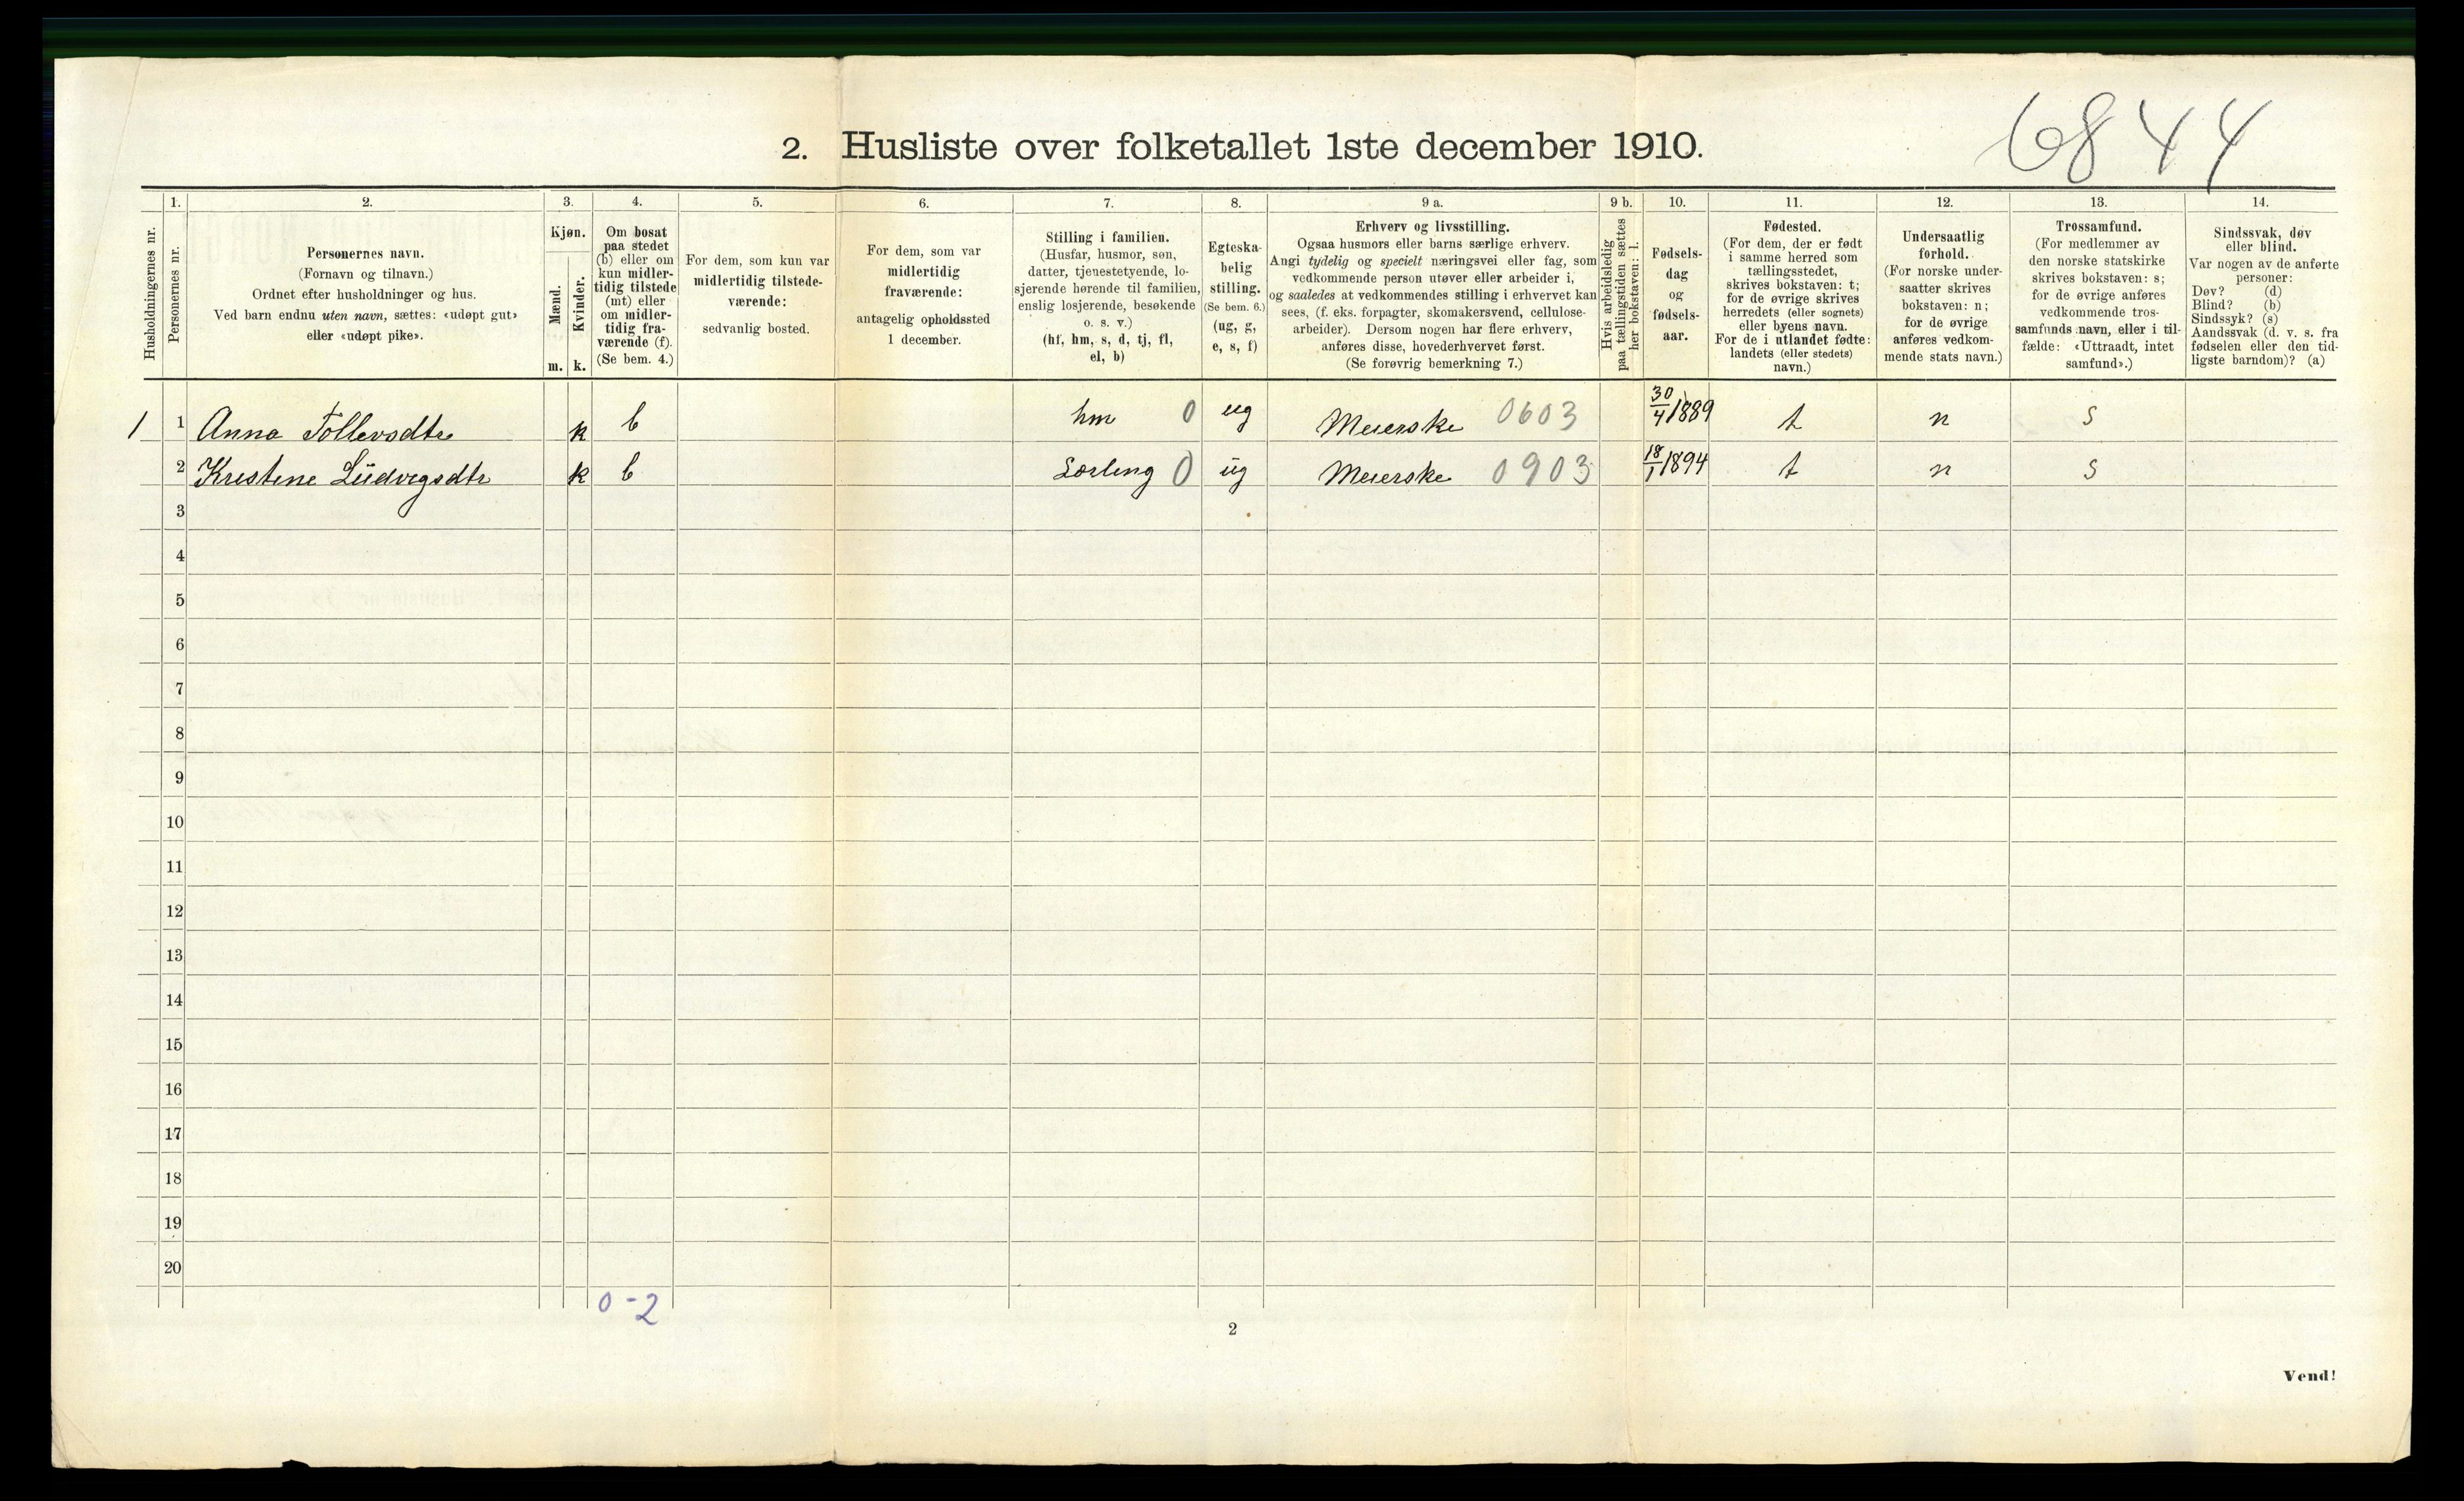 6844
2. Husliste over folketallet 1ste december 1910.
Husholdningernes nr.
1.
Personernes nr.
2.
Personernes navn.
(Fornavn og tilnavn.)
Ordnet efter husholdninger og hus.
Ved barn endnu uten navn, sættes: «udøpt gut»
eller «udøpt pike».
3.
Kjøn.
Mænd.
m.
Kvinder.
k.
4.
Om bosat
paa stedet
(b) eller om
kun midler-
tidig tilstede
(mt) eller
om midler-
tidig fra-
værende (f).
(Se bem. 4.)
5.
For dem, som kun var
midlertidig tilstede-
værende:
sedvanlig bosted.
6.
For dem, som var
midlertidig
fraværende:
antagelig opholdssted
1 december.
7.
Stilling i familien.
(Husfar, husmor, søn,
datter, tjenestetyende, lo-
sjerende hørende til familien,
enslig losjerende, besøkende
o. s. v.)
(hf, hm, s, d, tj, fl,
el, b)
8.
Egteska-
belig
stilling.
(Se bem. 6.)
(ug, g,
e, s, f)
9 a.
Erhverv og livsstilling.
Ogsaa husmors eller barns særlige erhverv.
Angi tydelig og specielt næringsvei eller fag, som
vedkommende person utøver eller arbeider i,
og saaledes at vedkommendes stilling i erhvervet kan
sees, (f. eks. forpagter, skomakersvend, cellulose-
arbeider). Dersom nogen har flere erhverv,
anføres disse, hovederhvervet først.
(Se forøvrig bemerkning 7.)
9 b.
Hvis arbeidsledig
paa tællingstiden sættes
her bokstaven: l.
10.
Fødsels-
dag
og
fødsels-
aar.
11.
Fødested.
(For dem, der er født
i samme herred som
tællingsstedet,
skrives bokstaven: t;
for de øvrige skrives
herredets (eller sognets)
eller byens navn.
For de i utlandet fødte:
landets (eller stedets)
navn.)
12.
Undersaatlig
forhold.
(For norske under-
saatter skrives
bokstaven: n;
for de øvrige
anføres vedkom-
mende stats navn.)
13.
Trossamfund.
(For medlemmer av
den norske statskirke
skrives bokstaven: s;
for de øvrige anføres
vedkommende tros-
samfunds navn, eller i til-
fælde: «Uttraadt, intet
samfund».)
14.
Sindssvak, døv
eller blind.
Var nogen av de anførte
personer:
Døv? (d)
Blind? (b)
Sindssyk? (s)
Aandssvak (d. v. s. fra
fødselen eller den tid-
ligste barndom)? (a)
1 1 Anna Tollevsdtr k b hm 0 ug Meierske 0603 30/4 1889 t n s
2 Kristine Ludvigsdtr k b Lærling 0 ug Meierske 0903 18/1 1894 t n s
3
4
5
6
7
8
9
10
11
12
13
14
15
16
17
18
19
20
0-2
2
Vend!